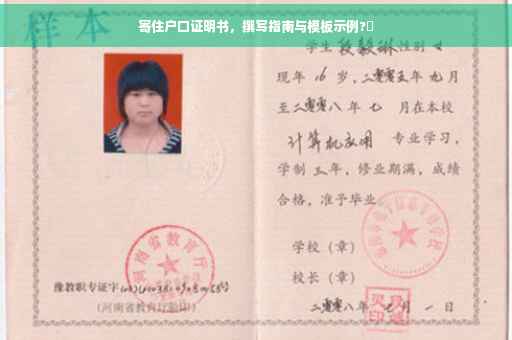 寄住户口证明书，撰写指南与模板示例?
样本
学生段毅琳性别女
现年16岁,二零零五年九月
至二零零八年七月在本校
计算机应用 专业学习,
学制三年，修业期满，成绩
合格，准予毕业
学校（章）
校长（章）
二零零八年七月一日
河南省教育厅
豫教职专证字
(河南省教育厅验印)